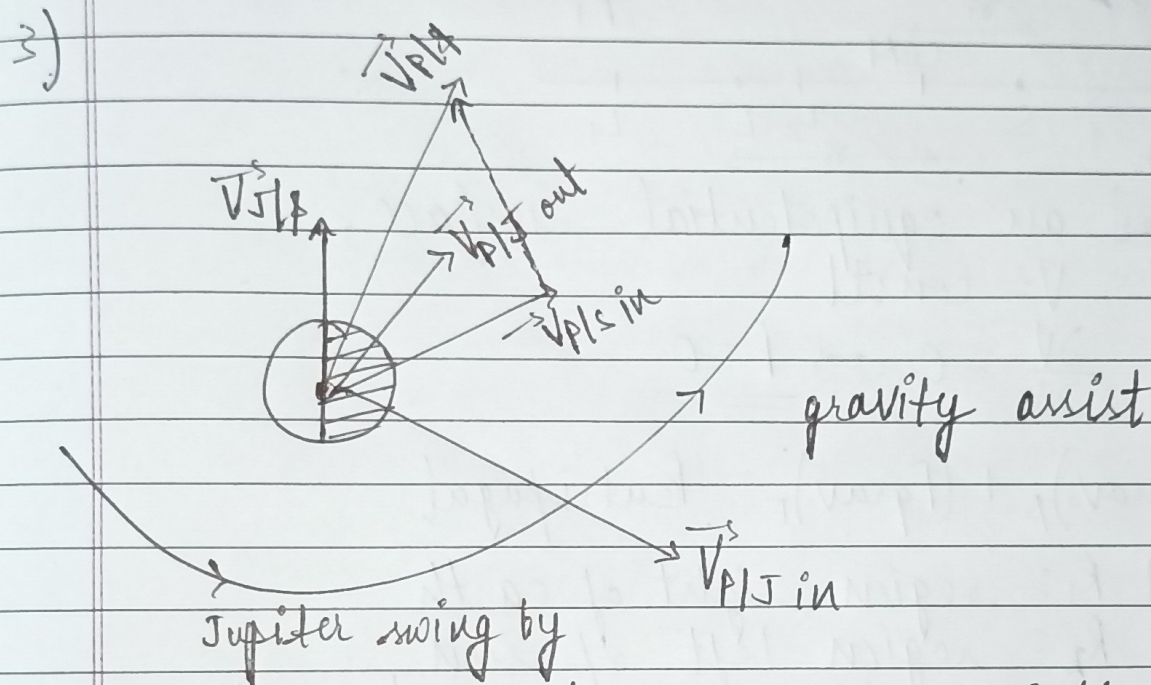 3)
V⃗P/
V⃗J/
V⃗P/J out
V⃗P/S in
gravity assist
V⃗P/J in
Jupiter swing by